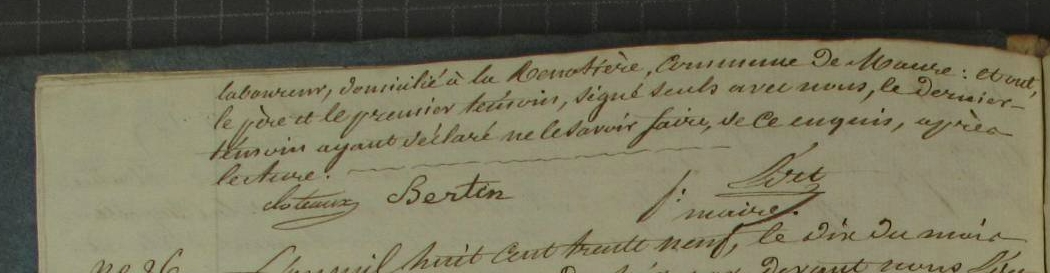 laboureur, domicilié à la Renotière, commune de Maure : et ont,
le père et le premier témoin, signé seuls avec nous, le dernier
témoin ayant déclaré ne le savoir faire, de ce enquis, après
lecture.
cloteaux Bertin
maire.
L'an mil huit cent trente neuf, le dix du mois
No 26
devant nous